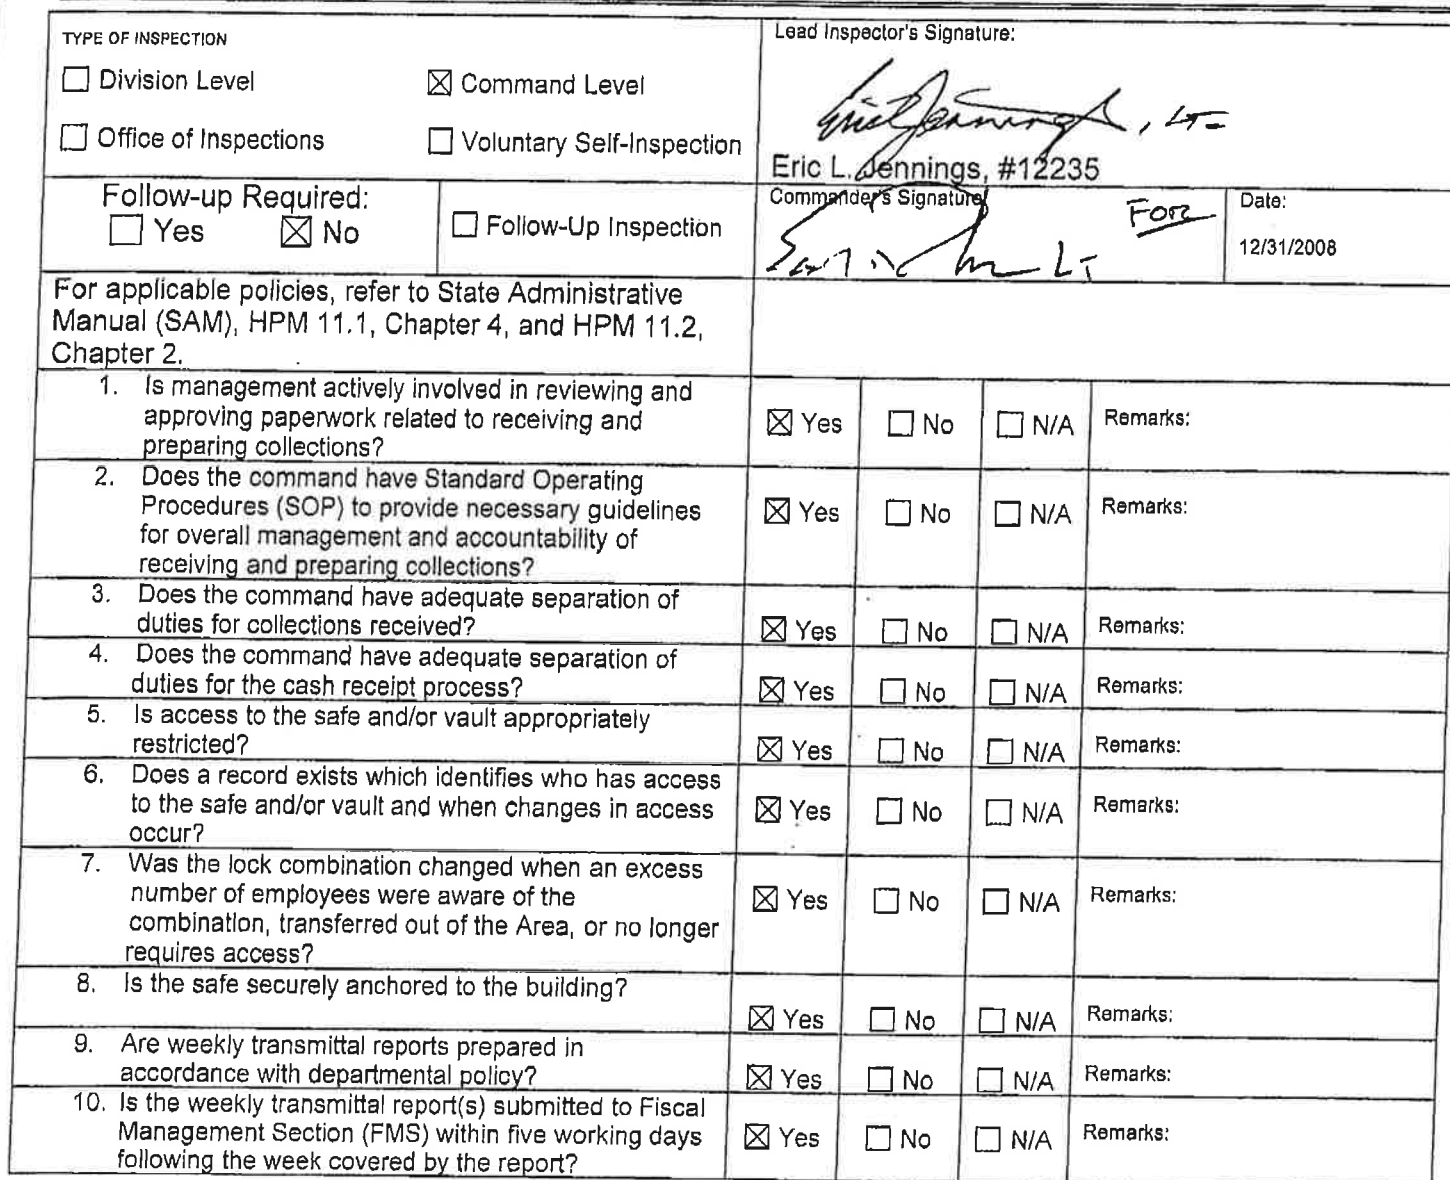 TYPE OF INSPECTION
☐ Division Level ☒ Command Level
☐ Office of Inspections ☐ Voluntary Self-Inspection
Lead Inspector's Signature:
Eric Jennings, LT
Eric L. Jennings, #12235
Follow-up Required:
☐ Yes ☒ No
☐ Follow-Up Inspection
Commander's Signature
FOR
LT
Date:
12/31/2008
For applicable policies, refer to State Administrative
Manual (SAM), HPM 11.1, Chapter 4, and HPM 11.2,
Chapter 2.
1. Is management actively involved in reviewing and
approving paperwork related to receiving and
preparing collections?
☒ Yes ☐ No ☐ N/A Remarks:
2. Does the command have Standard Operating
Procedures (SOP) to provide necessary guidelines
for overall management and accountability of
receiving and preparing collections?
☒ Yes ☐ No ☐ N/A Remarks:
3. Does the command have adequate separation of
duties for collections received?
☒ Yes ☐ No ☐ N/A Remarks:
4. Does the command have adequate separation of
duties for the cash receipt process?
☒ Yes ☐ No ☐ N/A Remarks:
5. Is access to the safe and/or vault appropriately
restricted?
☒ Yes ☐ No ☐ N/A Remarks:
6. Does a record exists which identifies who has access
to the safe and/or vault and when changes in access
occur?
☒ Yes ☐ No ☐ N/A Remarks:
7. Was the lock combination changed when an excess
number of employees were aware of the
combination, transferred out of the Area, or no longer
requires access?
☒ Yes ☐ No ☐ N/A Remarks:
8. Is the safe securely anchored to the building?
☒ Yes ☐ No ☐ N/A Remarks:
9. Are weekly transmittal reports prepared in
accordance with departmental policy?
☒ Yes ☐ No ☐ N/A Remarks:
10. Is the weekly transmittal report(s) submitted to Fiscal
Management Section (FMS) within five working days
following the week covered by the report?
☒ Yes ☐ No ☐ N/A Remarks: